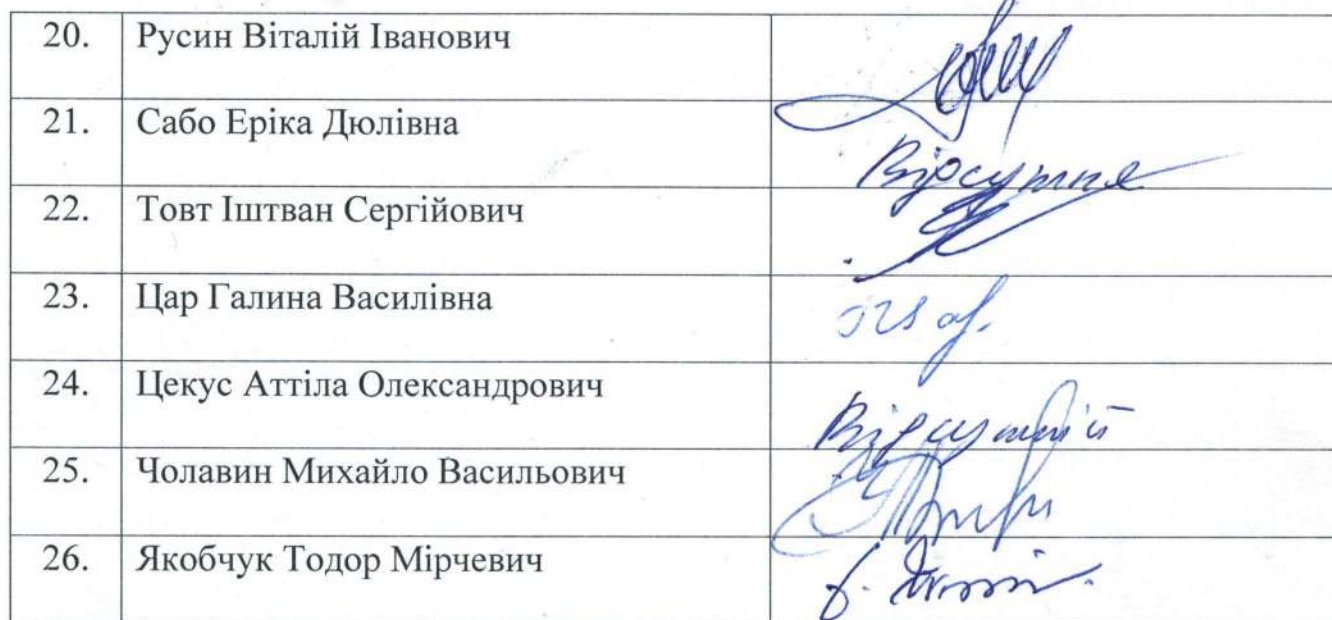 20. Русин Віталій Іванович
21. Сабо Еріка Дюлівна Відсутня
22. Товт Іштван Сергійович
23. Цар Галина Василівна
24. Цекус Аттіла Олександрович Відсутній
25. Чолавин Михайло Васильович
26. Якобчук Тодор Мірчевич